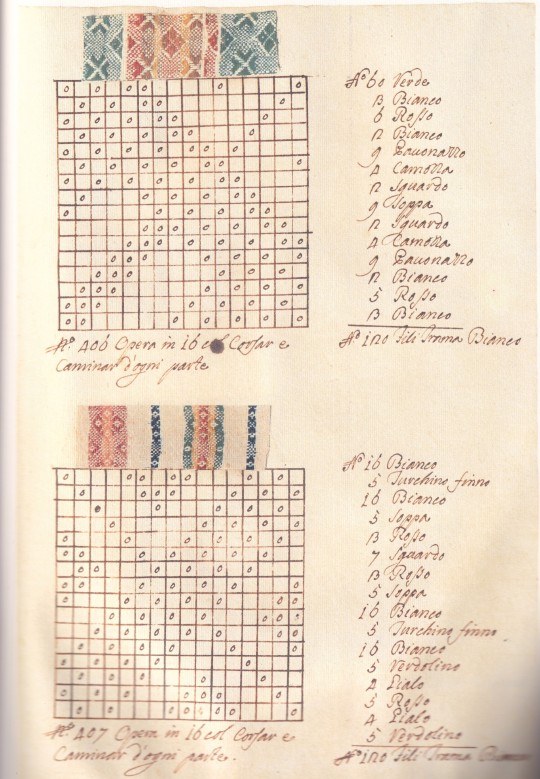 No. 60 Verde
3 Bianco
6 Rosso
2 Bianco
9 Pauonazzo
4 Camozza
2 Sguardo
9 Soppa
2 Sguardo
4 Camozza
9 Pauonazzo
2 Bianco
5 Rosso
3 Bianco
No. 120 Fili Trama Bianco
No. 406 Opera in 16 col Corsar e
Caminar d'ogni parte
No. 16 Bianco
5 Turchino finno
16 Bianco
5 Soppa
3 Rosso
7 Sguardo
3 Rosso
5 Soppa
16 Bianco
5 Turchino finno
16 Bianco
5 Verdolino
4 Zialo
5 Rosso
4 Zialo
5 Verdolino
No. 120 Fili Trama Bianco
No. 407 Opera in 16 col Corsar e
Caminar d'ogni parte.